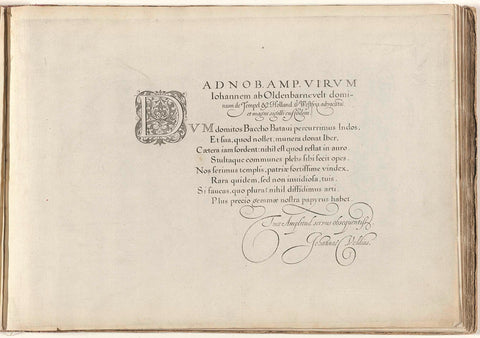 AD NOB. AMP. VIRVM
Iohannem ab Oldenbarnevelt domi-
num de Tempel &c Holland. & Westfris. advocatum
et magni sigilli custodem
DVM domitos Baccho Batavi percurrimus Indos,
Et sua, quod nollet, munera donat Iber,
Cætera iam sordent: nihil est quod restat in auro
Stultaque communes plebs sibi fecit opes.
Nos ferimus templis, patriæ fortissime vindex,
Rara quidem, sed non invidiosa, tuis.
Si faucas, quo plura? nihil diffidimus arti
Plus precio gemmæ nostra papyrus habet
Tuæ Amplitud. servus obsequentiss.
Johannes Veldius.